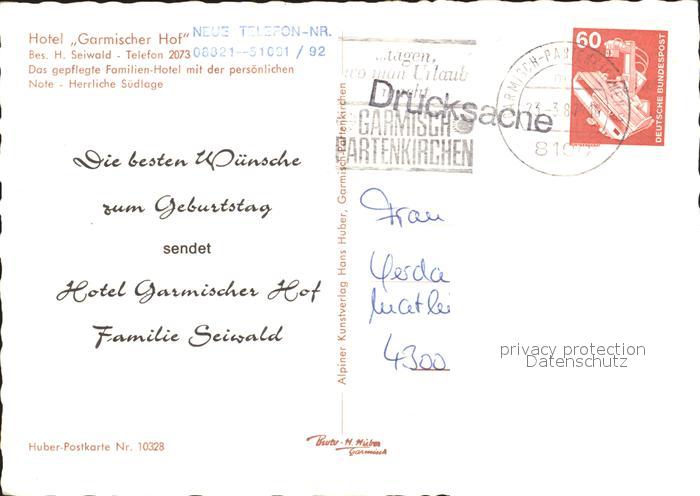 Hotel „Garmischer Hof"
NEUE TELEFON-NR.
Bes. H. Seiwald - Telefon 2073
08821-51091 / 92
Das gepflegte Familien-Hotel mit der persönlichen
Note - Herrliche Südlage
Die besten Wünsche
zum Geburtstag
sendet
Hotel Garmischer Hof
Familie Seiwald
Huber-Postkarte Nr. 10328
Alpiner Kunstverlag Hans Huber, Garmisch-Partenkirchen
Photo-H. Huber
Garmisch
...tagen,
wo man Urlaub
macht
GARMISCH
PARTENKIRCHEN
Drucksache
60
DEUTSCHE BUNDESPOST
Frau
Gerda
4300
privacy protection
Datenschutz